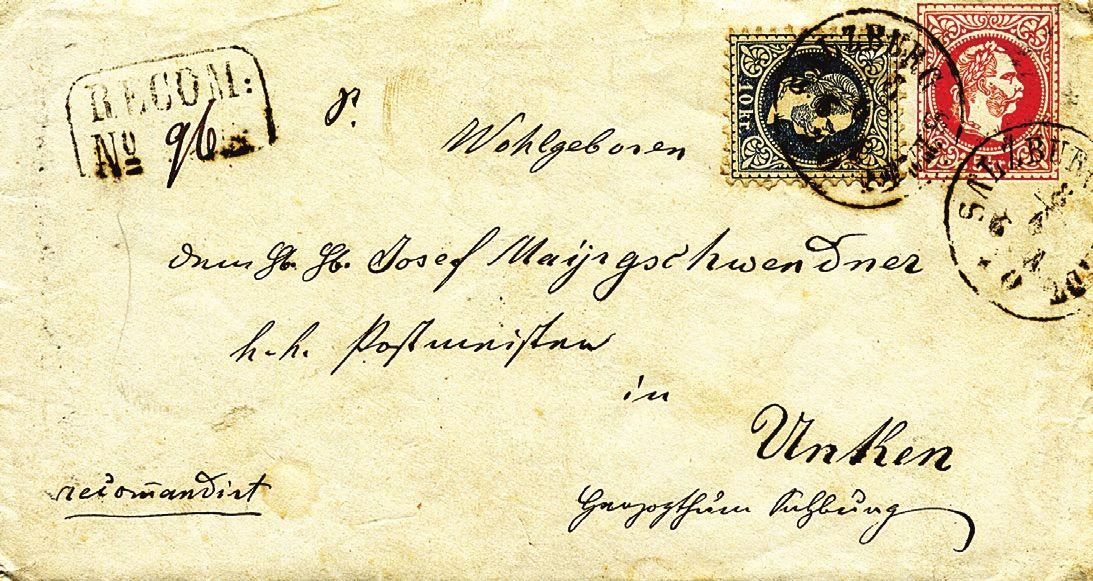 RECOM:
No 96
SALZBURG
10 KR.
Wohlgeboren
dem H. H. Josef Mayrgschwendner
k. k. Postmeister
in
Unken
recomandirt
Herzogthum Salzburg